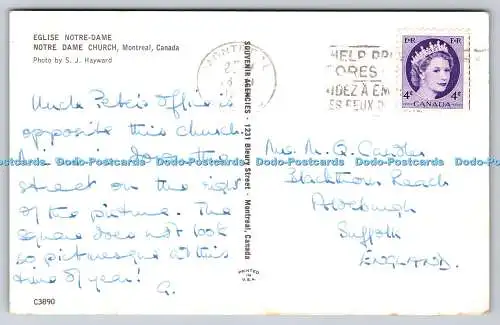 EGLISE NOTRE-DAME
NOTRE DAME CHURCH, Montreal, Canada
Photo by S. J. Hayward
Uncle Peter's office is
opposite this church.
down the
street on the right
of the picture. The
square does not look
so picturesque at this
time of year!
G.
C3890
SOUVENIR AGENCIES - 1231 Bleury Street - Montreal, Canada
PRINTED
IN
U.S.A.
MONTREAL
HELP PR
FORES
IDEZ À EM
ES FEUX D
E·R E·R
4¢ 4¢
CANADA
Mrs. M. G.
Blackthorn Reach
Aldeburgh
Suffolk
ENGLAND.
Dodo-Postcards Dodo-Postcards Dodo-Postcards Dodo-Postcards